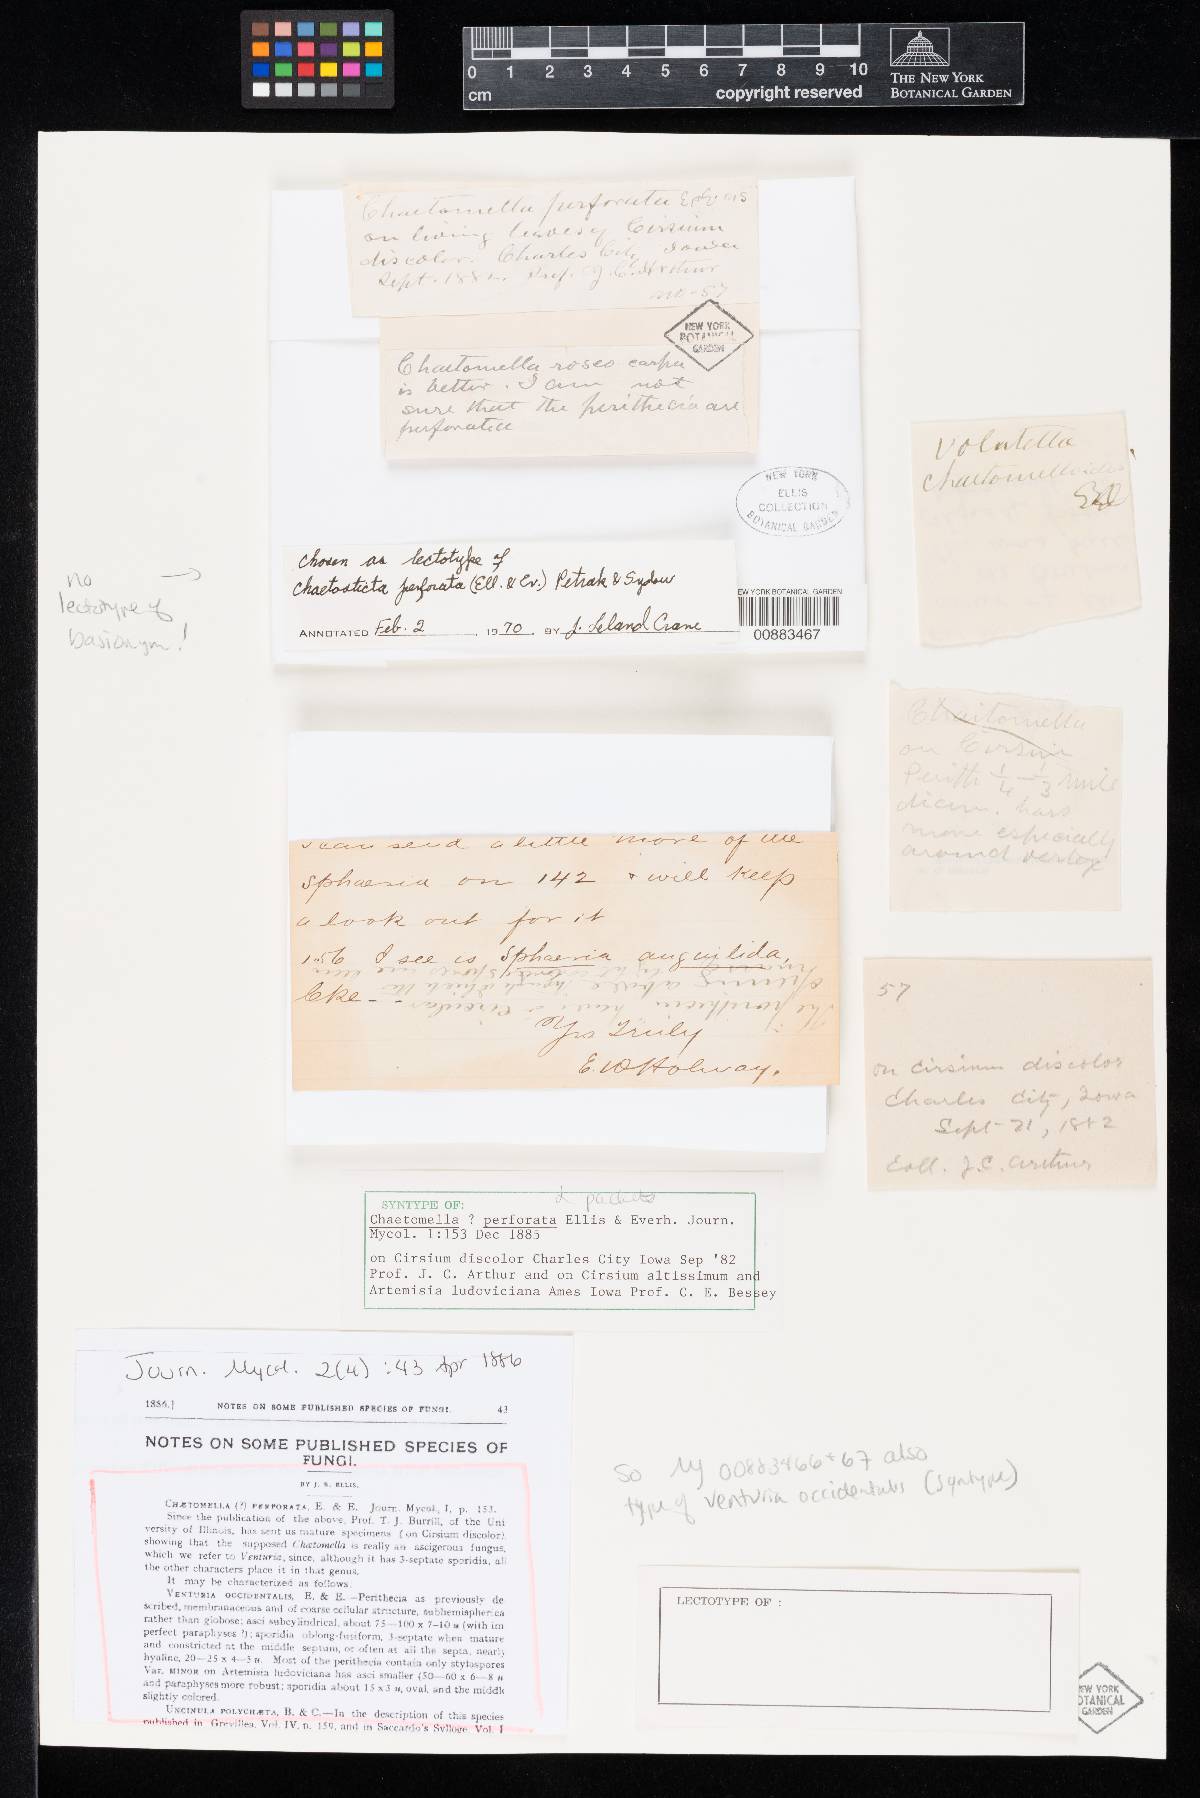 0 1 2 3 4 5 6 7 8 9 10
cm
copyright reserved
THE NEW YORK
BOTANICAL GARDEN
Chaetomella perforata E & E
on living leaves of Cirsium
discolor. Charles City Iowa
Sept. 1882. Prof. J. C. Arthur
no-57
NEW YORK
BOTANICAL
GARDEN
Chaetomella roseo carpa
is better. I am not
sure that the perithecia are
perforated
NEW YORK
ELLIS
COLLECTION
BOTANICAL GARDEN
chosen as lectotype of
Chaetosticta perforata (Ell. & Ev.) Petrak & Sydow
ANNOTATED Feb. 2, 1970. BY J. Leland Crane
EW YORK BOTANICAL GARDEN
00883467
no →
lectotype of
basionym!
Volutella
chaetomelloides
Chaetomella
on Cirsium
Perith 1/4 - 1/3 mill
diam. hars
more especially
around vertex
I can send a little more of the
Sphaeria on 142 & will keep
a look out for it
156 I see is Sphaeria anguilida,
Cke -
The perithecia have a circular
opening above through which the
spores are seen
Yrs Truly
E. W. Holway.
57
on Cirsium discolor
Charles City, Iowa
Sept 21, 1882
Coll. J. C. Arthur
2 packets
SYNTYPE OF:
Chaetomella ? perforata Ellis & Everh. Journ.
Mycol. 1:153 Dec 1885
on Cirsium discolor Charles City Iowa Sep '82
Prof. J. C. Arthur and on Cirsium altissimum and
Artemisia ludoviciana Ames Iowa Prof. C. E. Bessey
Journ. Mycol. 2(4) : 43 Apr 1886
1886.] NOTES ON SOME PUBLISHED SPECIES OF FUNGI. 43
NOTES ON SOME PUBLISHED SPECIES OF
FUNGI.
BY J. B. ELLIS.
CHÆTOMELLA (?) PERFORATA, E. & E. Journ. Mycol, I, p. 153.
Since the publication of the above, Prof. T. J. Burrill, of the Uni
versity of Illinois, has sent us mature specimens (on Cirsium discolor),
showing that the supposed Chætomella is really an ascigerous fungus,
which we refer to Venturia, since, although it has 3-septate sporidia, all
the other characters place it in that genus.
It may be characterized as follows.
VENTURIA OCCIDENTALIS, E. & E.—Perithecia as previously de
scribed, membranaceous and of coarse cellular structure, subhemispherica
rather than globose; asci subcylindrical, about 75—100 x 7-10 μ (with im
perfect paraphyses ?); sporidia oblong-fusiform, 3-septate when mature
and constricted at the middle septum, or often at all the septa, nearly
hyaline, 20—25 x 4—5 μ. Most of the perithecia contain only stylospores
Var. MINOR on Artemisia ludoviciana has asci smaller (50—60 x 6—8 μ
and paraphyses more robust; sporidia about 15 x 3 μ, oval, and the middle
slightly colored.
UNCINULA POLYCHÆTA, B. & C.—In the description of this species
published in Grevillea, Vol. IV, p. 159, and in Saccardo's Sylloge, Vol. I
So NY 00883466 + 67 also
type of Venturia occidentalis (syntype)
LECTOTYPE OF :
NEW YORK
BOTANICAL
GARDEN